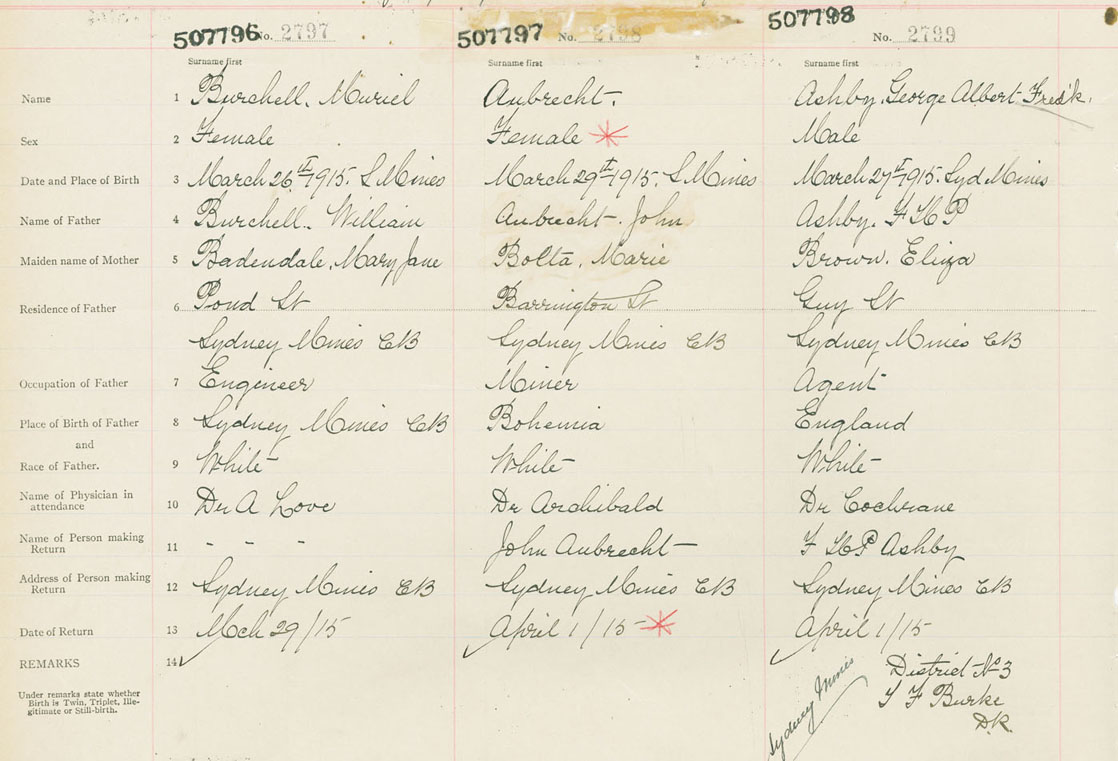 507796 No. 2797 507797 No. 2798 507798 No. 2799
Surname first Surname first Surname first
Name 1 Burchell, Muriel Aubrecht. Ashby, George Albert Fred'k.
Sex 2 Female Female * Male
Date and Place of Birth 3 March 26th 1915. S. Mines March 29th 1915. S. Mines March 27th 1915. Syd Mines
Name of Father 4 Burchell. William Aubrecht. John Ashby. F H P
Maiden name of Mother 5 Badendale, Mary Jane Bolta, Marie Brown. Eliza
Residence of Father 6 Pond St Barrington St Guy St
Sydney Mines CB Sydney Mines CB Sydney Mines CB
Occupation of Father 7 Engineer Miner Agent
Place of Birth of Father 8 Sydney Mines CB Bohemia England
and
Race of Father. 9 White White White
Name of Physician in
attendance 10 Dr A Love Dr Archibald Dr Cochrane
Name of Person making
Return 11 - - - John Aubrecht F H P Ashby
Address of Person making
Return 12 Sydney Mines CB Sydney Mines CB Sydney Mines CB
Date of Return 13 Mch 29/15 April 1/15 * April 1/15
REMARKS 14 District No 3
Under remarks state whether
Birth is Twin, Triplet, Ille-
gitimate or Still-birth.
Sydney Mines
Burke
D.R.